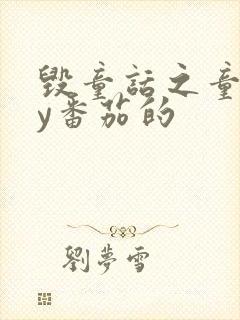 毁童话之童
y番茄的
劉夢雪